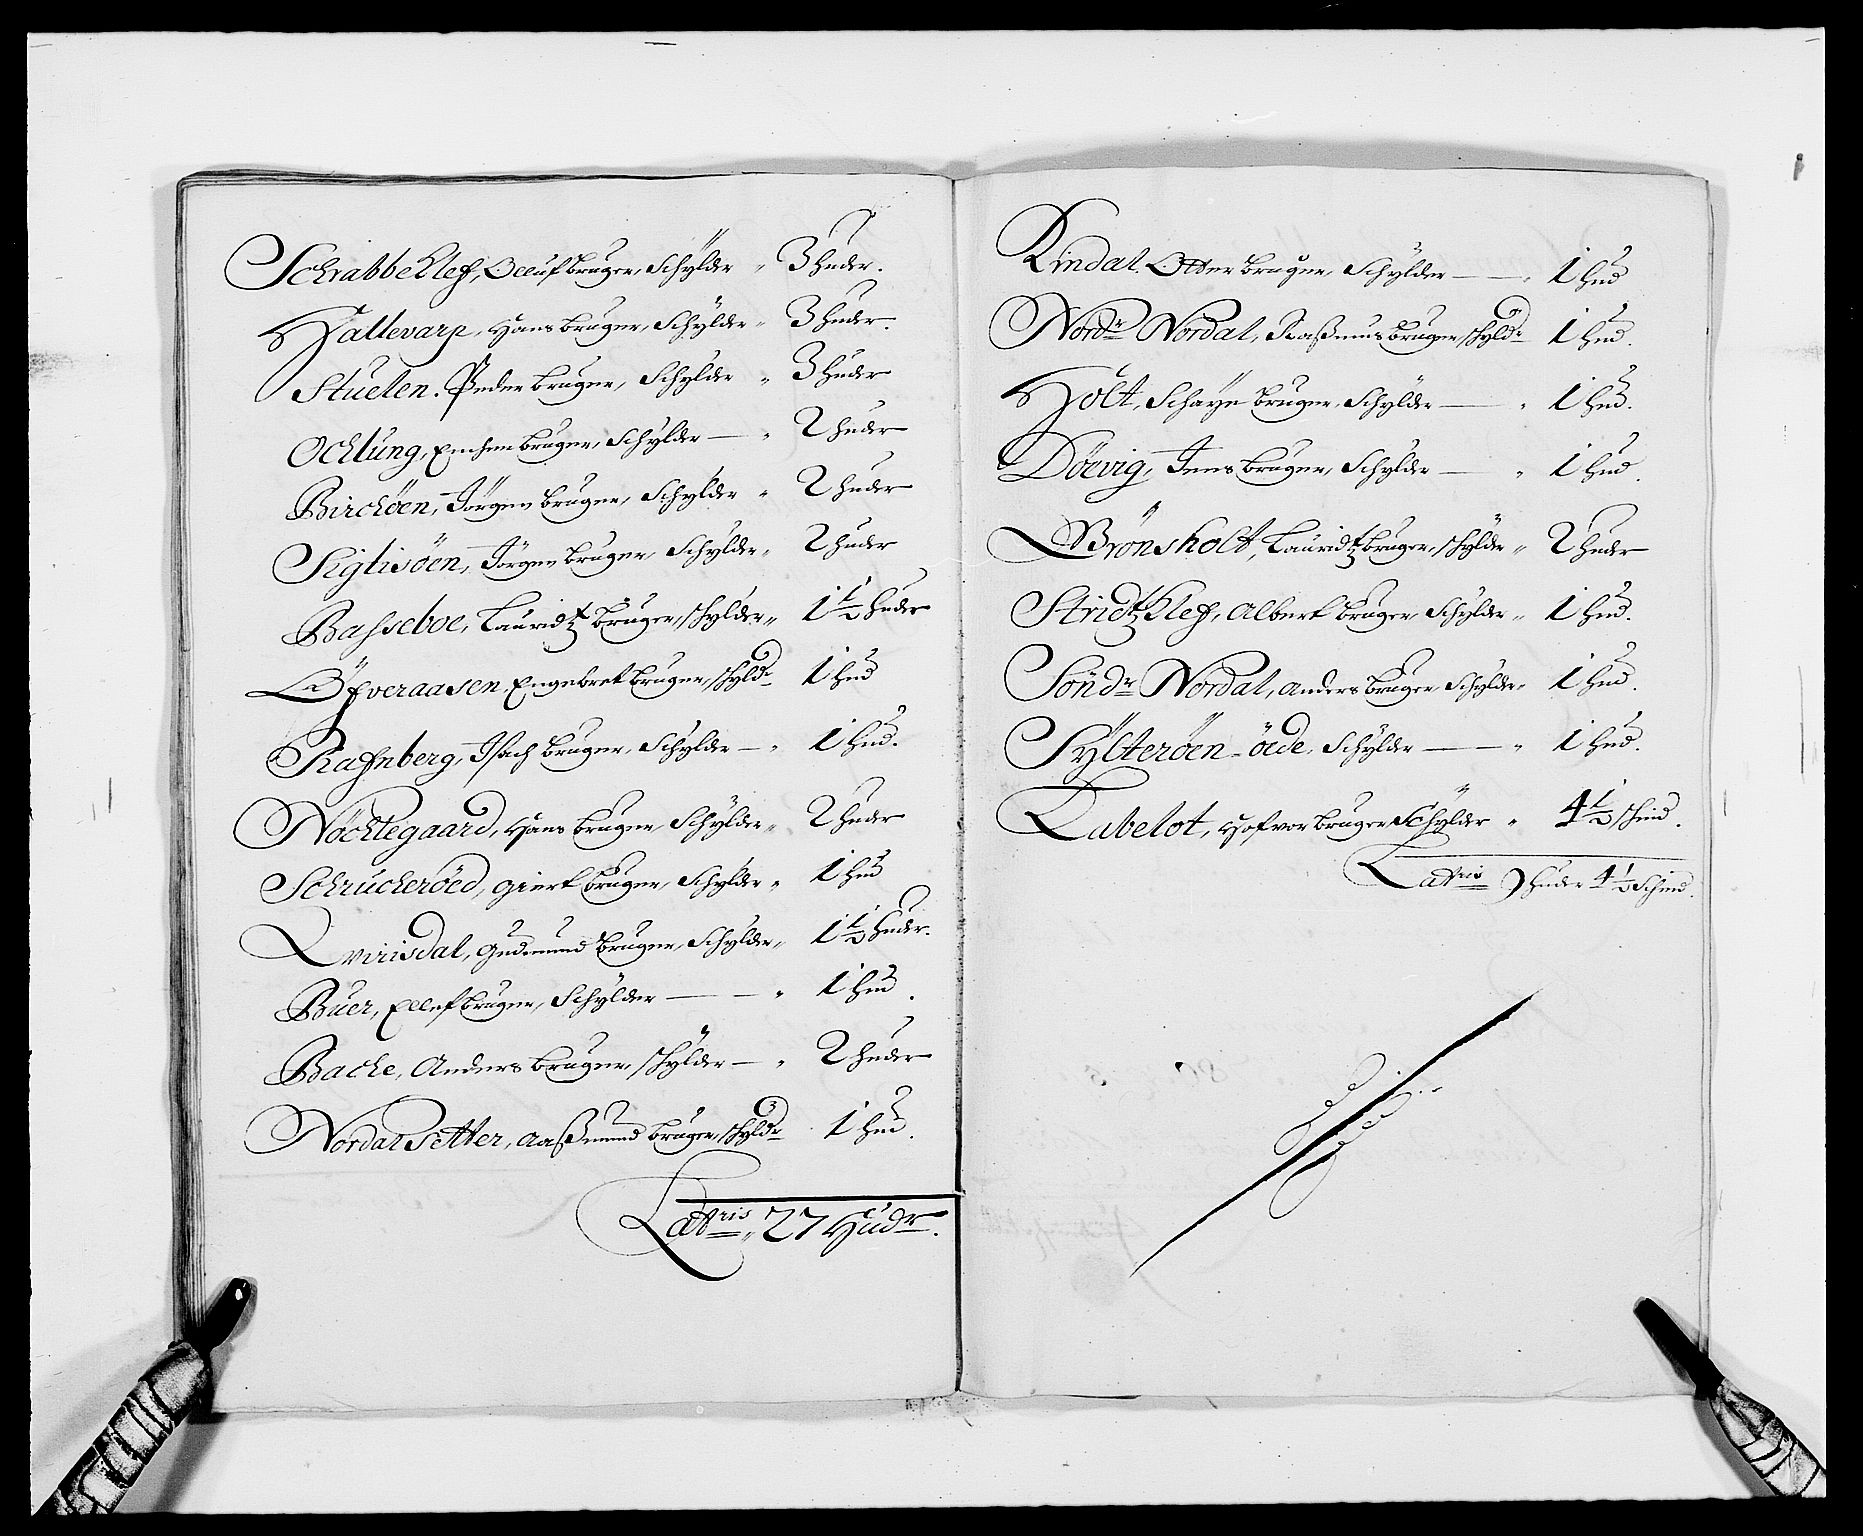 Schrabbeklef, Oeluf bruger, Schÿlder „ 3 huder.
Hallevarp, Hans bruger, Schÿlder „ 3 huder.
Stuelen. Peder bruger, Schÿlder „ 3 huder
Ochlung, Emhen bruger, Schÿlder — „ 2 huder
Birchöen, Jörgen bruger, Schÿlder „ 2 huder
Siglisöen, Jörgen bruger, Schÿlder „ 2 huder
Basseboe, Lauridtz bruger, schÿlder „ 1 1/2 huder
Öfveraasen Engebret bruger, schÿldr 1 hud
Rafnberg, Isach bruger, Schÿlder — „ 1 hud.
Nöchlegaard, Hans bruger, Schÿlder „ 2 huder
Schrucheröed, Giert bruger, Schÿlder „ 1 hud
Qvirisdal, Gudmund bruger, Schÿlder „ 1 1/2 huder.
Buer, Ellef bruger, Schÿlder — — „ 1 hud.
Bache, Anders bruger, schÿlder — „ 2 huder
Nordar Setter, Aaßmund bruger, schÿldr 1 hud.
Latris „ 27 Hudr.
Rindal. Otter bruger, Schÿlder — — „ 1 hud
Nordr Nordal, Raßmus bruger, schÿldr 1 hud.
Holt, Schaÿe bruger, Schÿlder — „ 1 hud.
Döevig, Jens bruger, Schÿlder — „ 1 hud.
Brönsholt, Lauridtz bruger, schÿlder „ 2 huder
Stridtzklef, Albert bruger, Schÿlder „ 1 hud.
Söndr Nordal, Anders bruger, Schÿlder „ 1 hud.
Sÿlteröen - öede, Schÿlder — — „ 1 hud.
Labelot, Hafvor bruger Schÿlder „ 4 1/2 schind.
Latris 9 huder 4 1/2 Schind.